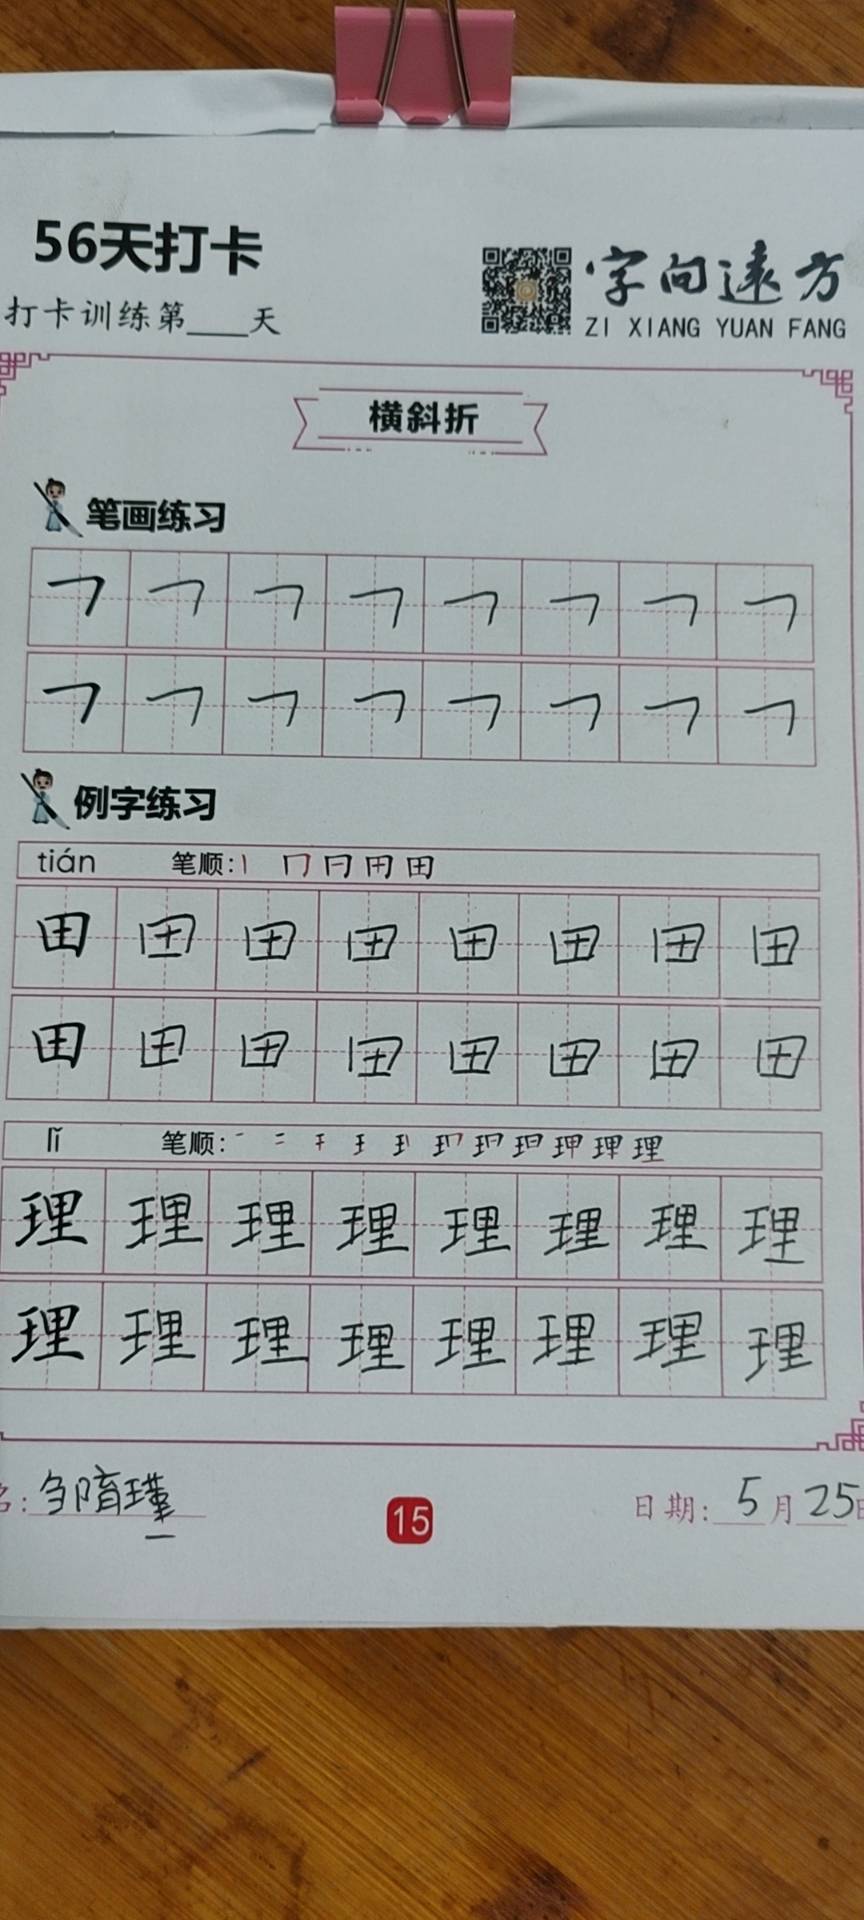 56天打卡
打卡训练第____天
字向远方
ZI XIANG YUAN FANG
横斜折
笔画练习
㇕ ㇕ ㇕ ㇕ ㇕ ㇕ ㇕ ㇕
㇕ ㇕ ㇕ ㇕ ㇕ ㇕ ㇕ ㇕
例字练习
tián 笔顺:丨 冂 日 田 田
田 田 田 田 田 田 田 田
田 田 田 田 田 田 田 田
lǐ 笔顺:
理 理 理 理 理 理 理 理
理 理 理 理 理 理 理 理
名:
15
日期: 5月25日